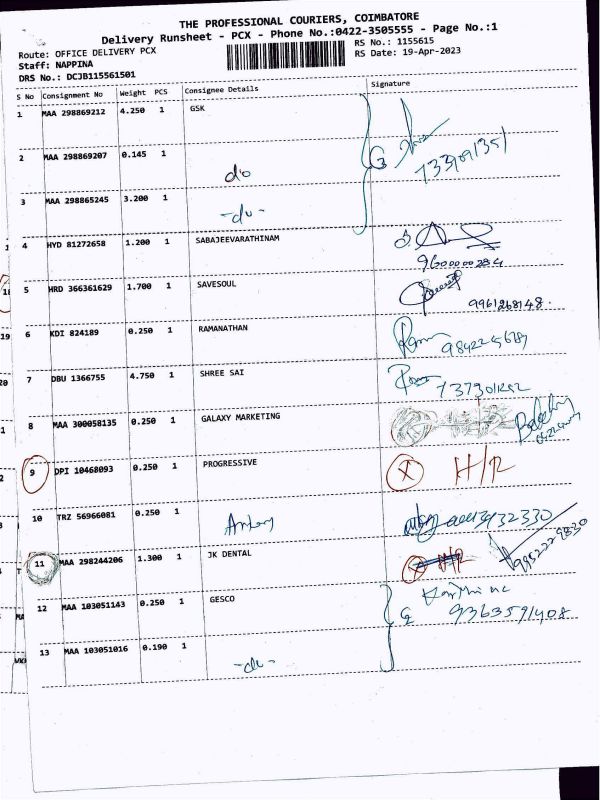 THE PROFESSIONAL COURIERS, COIMBATORE
Delivery Runsheet - PCX - Phone No.:0422-3505555 - Page No.:1
Route: OFFICE DELIVERY PCX
RS No.: 1155615
Staff: NAPPINA
RS Date: 19-Apr-2023
DRS No.: DCJB115561501
S No Consignment No Weight PCS Consignee Details Signature
1 MAA 298869212 4.250 1 GSK
2 MAA 298869207 0.145 1 do
3 MAA 298865245 3.200 1 -do-
4 HYD 81272658 1.200 1 SABAJEEVARATHINAM
5 HRD 366361629 1.700 1 SAVESOUL
9961268148.
6 KDI 824189 0.250 1 RAMANATHAN
7 DBU 1366755 4.750 1 SHREE SAI
8 MAA 300058135 0.250 1 GALAXY MARKETING
9 DPI 10468093 0.250 1 PROGRESSIVE X H/R
10 TRZ 56966081 0.250 1
11 MAA 298244206 1.300 1 JK DENTAL X H/R
12 MAA 103051143 0.250 1 GESCO
9363591408
13 MAA 103051016 0.190 1 -do-